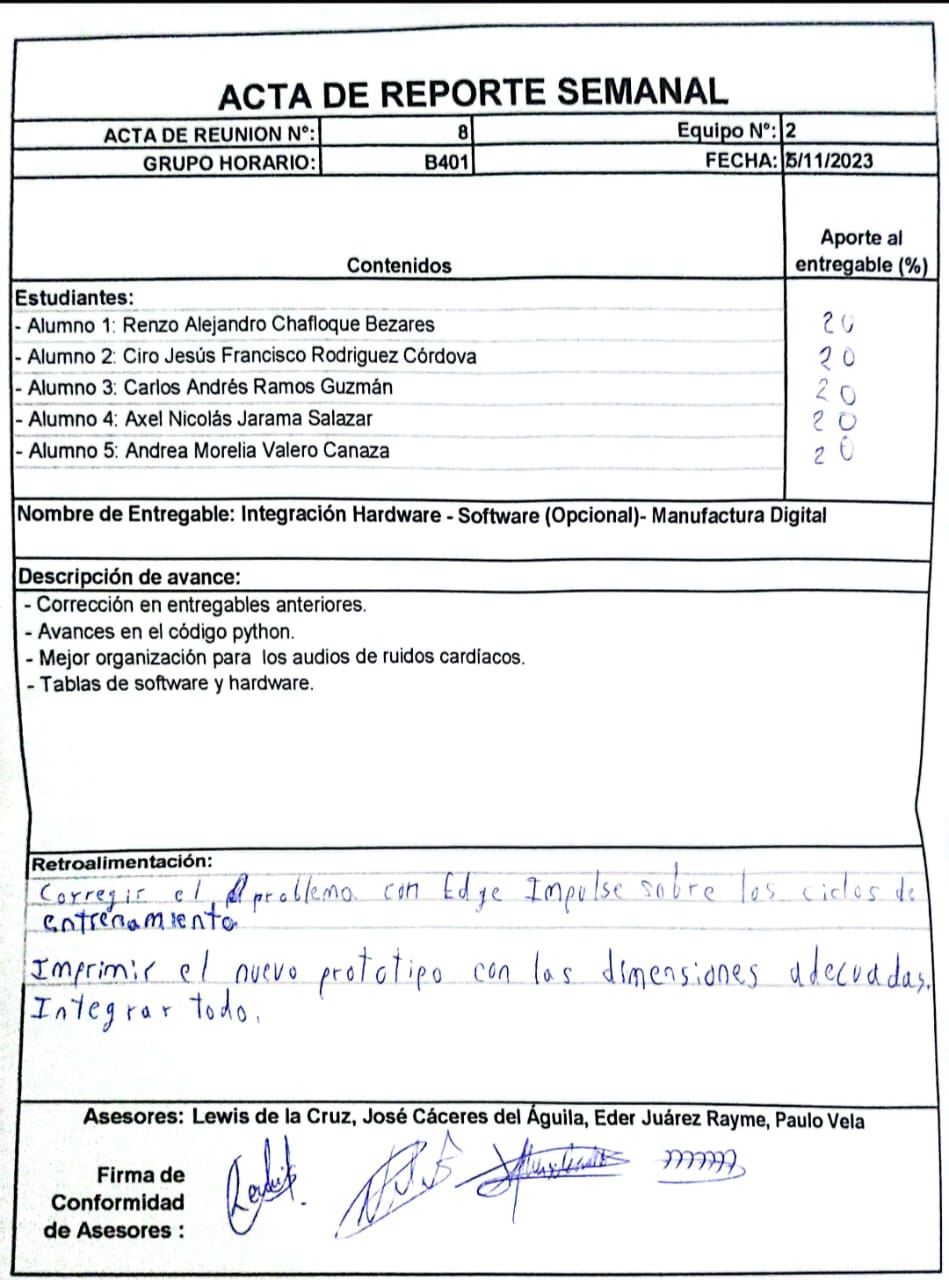 ACTA DE REPORTE SEMANAL
ACTA DE REUNION Nº: 8 Equipo Nº: 2
GRUPO HORARIO: B401 FECHA: 5/11/2023
Contenidos Aporte al entregable (%)
Estudiantes:
- Alumno 1: Renzo Alejandro Chafloque Bezares 20
- Alumno 2: Ciro Jesús Francisco Rodriguez Córdova 20
- Alumno 3: Carlos Andrés Ramos Guzmán 20
- Alumno 4: Axel Nicolás Jarama Salazar 20
- Alumno 5: Andrea Morelia Valero Canaza 20
Nombre de Entregable: Integración Hardware - Software (Opcional)- Manufactura Digital
Descripción de avance:
- Corrección en entregables anteriores.
- Avances en el código python.
- Mejor organización para los audios de ruidos cardíacos.
- Tablas de software y hardware.
Retroalimentación:
Corregir el problema con Edge Impulse sobre los ciclos de
entrenamiento
Imprimir el nuevo prototipo con las dimensiones adecuadas.
Integrar todo.
Asesores: Lewis de la Cruz, José Cáceres del Águila, Eder Juárez Rayme, Paulo Vela
Firma de
Conformidad
de Asesores :